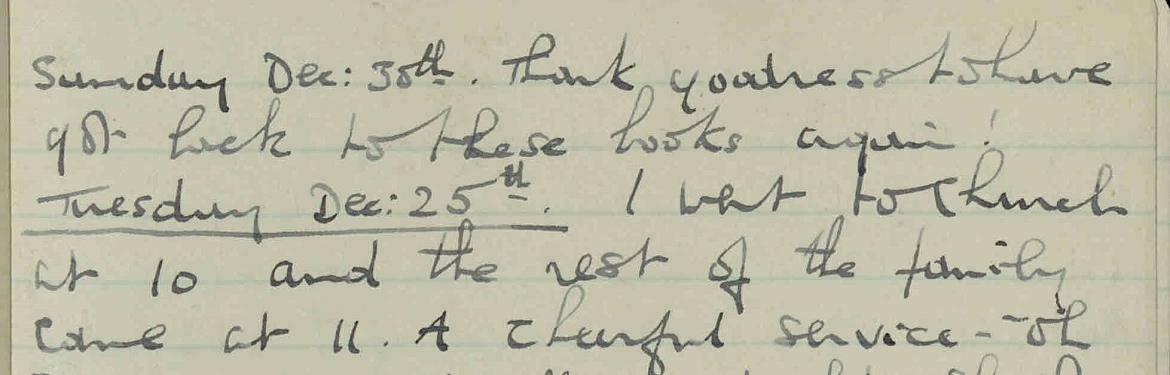 Sunday Dec: 30th. Thank goodness to have
got back to these books again!
Tuesday Dec: 25th. I went to Church
at 10 and the rest of the family
came at 11. A cheerful service - oh